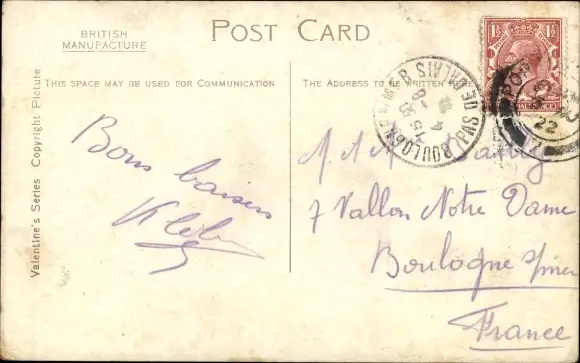 BRITISH
MANUFACTURE
POST CARD
THIS SPACE MAY BE USED FOR COMMUNICATION
THE ADDRESS TO BE WRITTEN
Valentine's Series Copyright Picture
1½ 1½
BOULOGNE S MER
PAS DE CALAIS
22
Bons baisers
M
7 Vallon Notre Dame
Boulogne s/mer
France